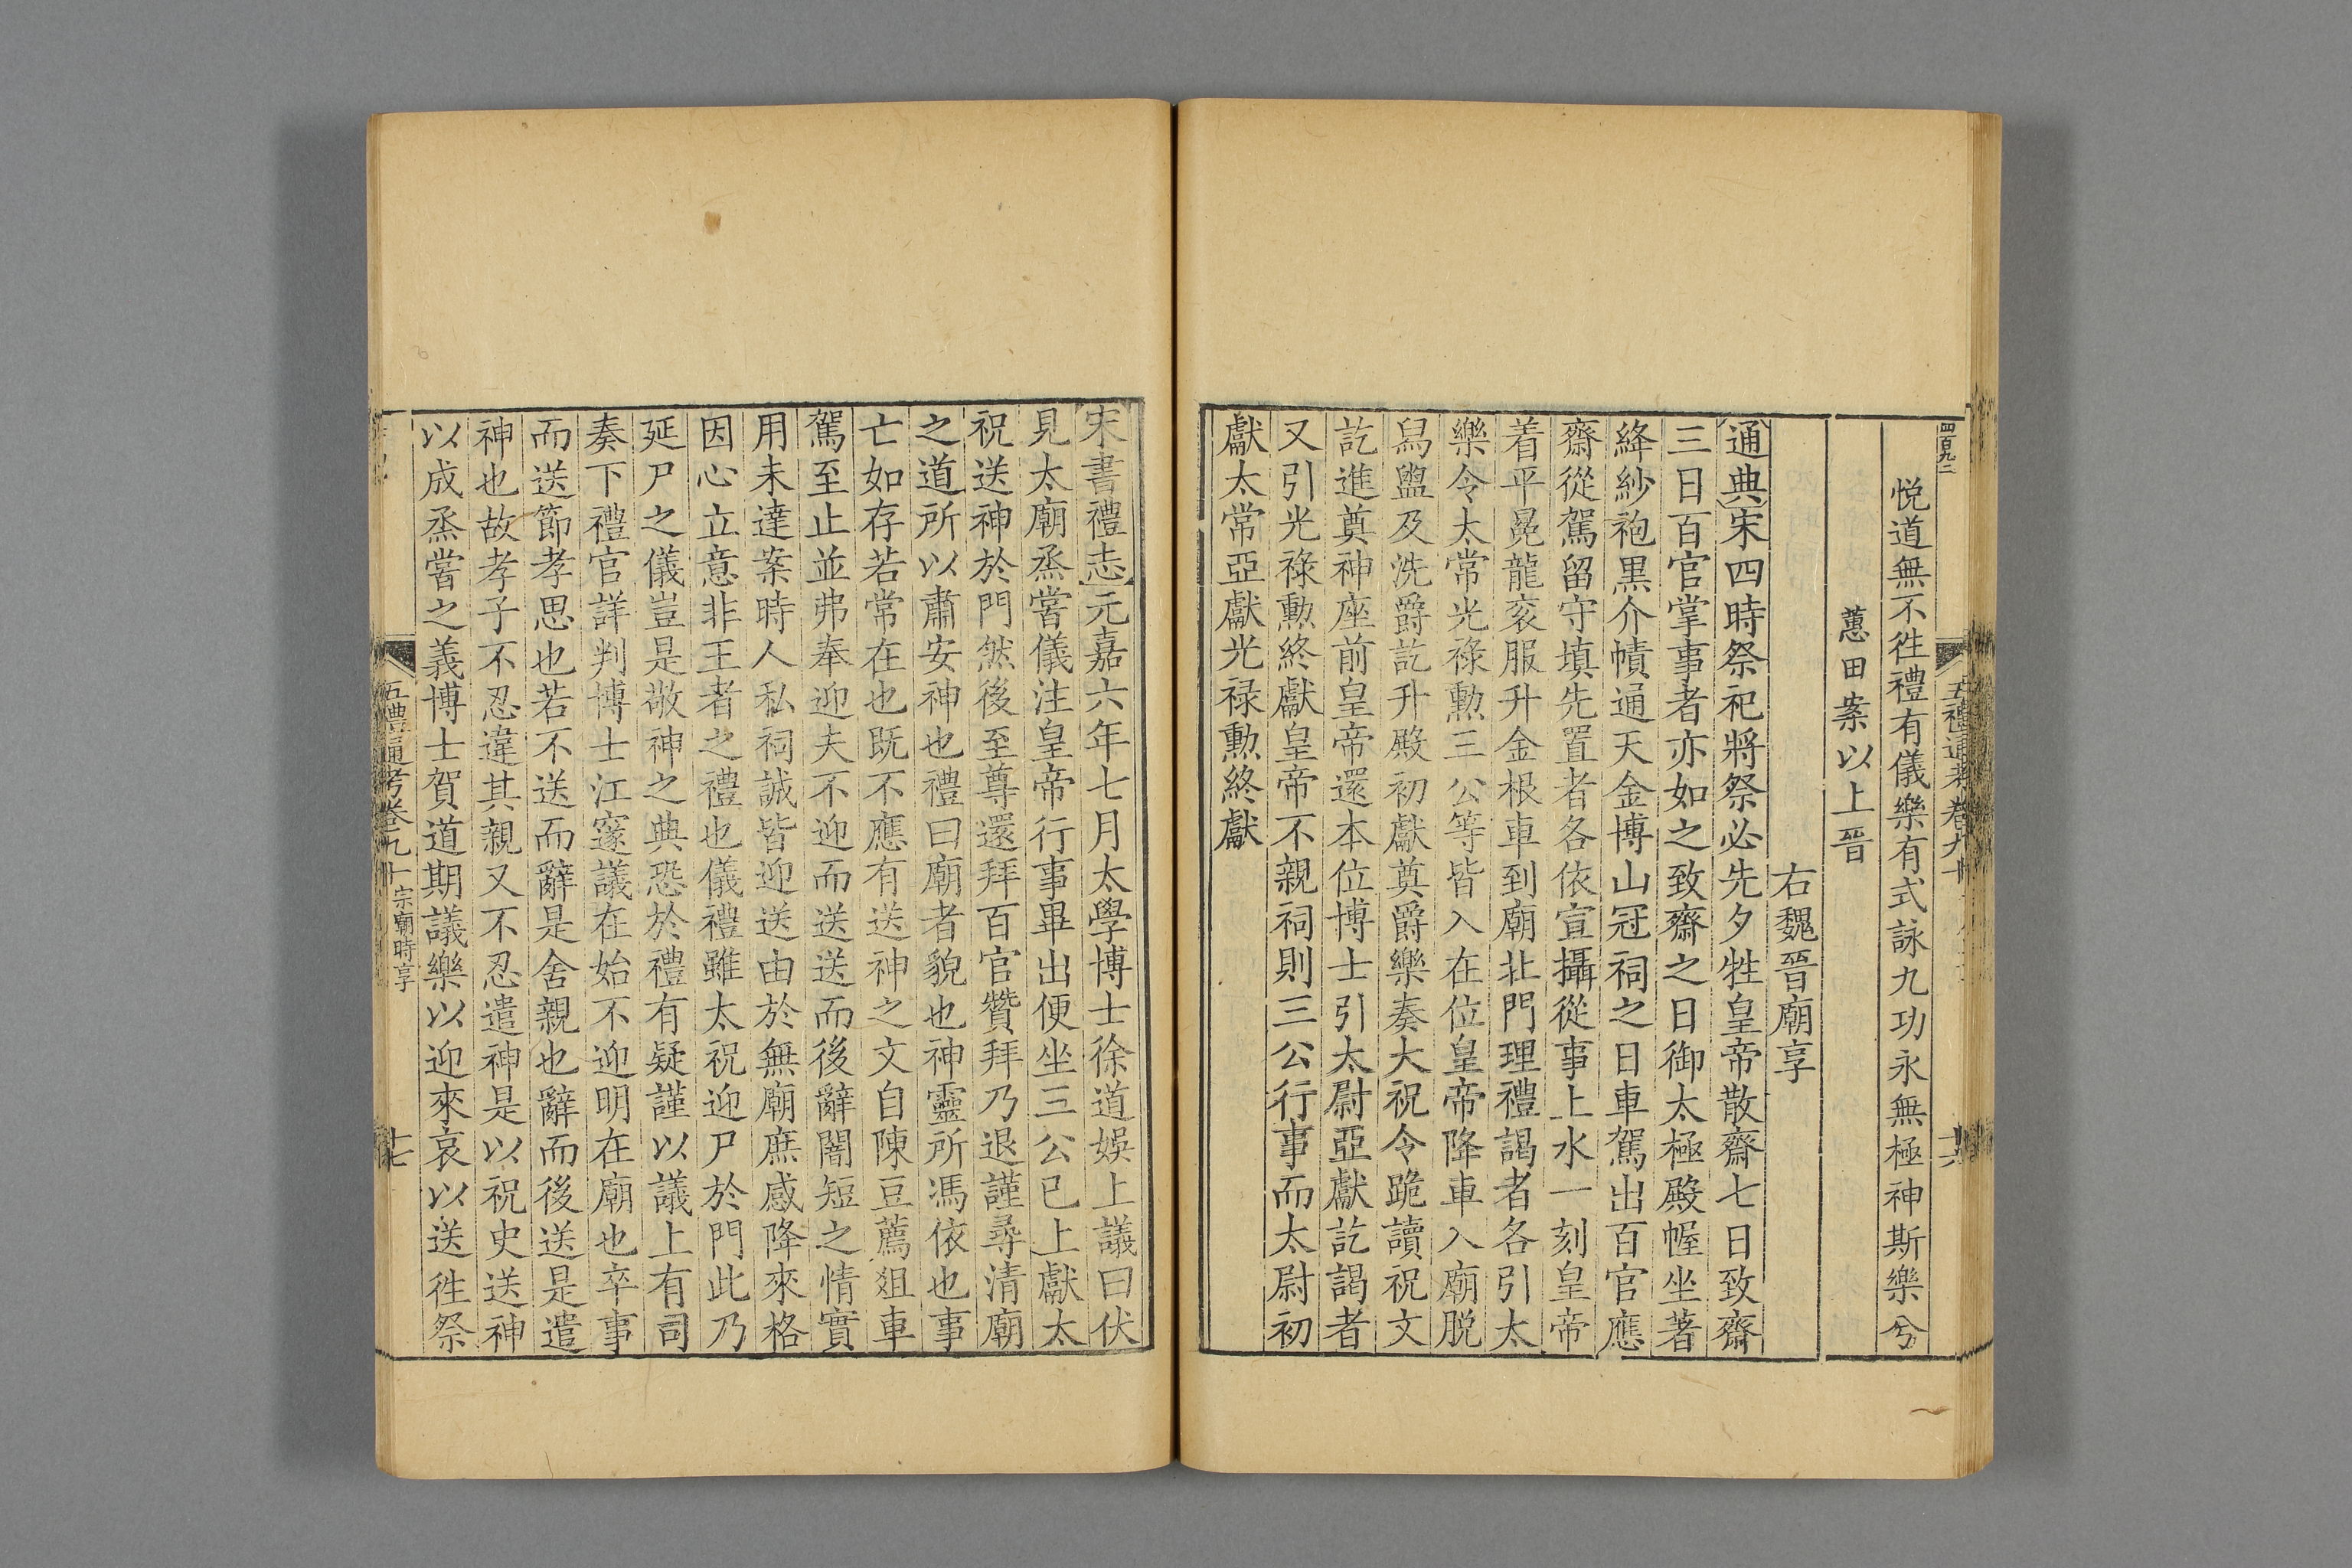 四百九二
悅道無不徃禮有儀樂有式詠九功永無極神斯樂兮
蕙田案以上晉
右魏晉廟享
通典宋四時祭祀將祭必先夕牲皇帝散齋七日致齋
三日百官掌事者亦如之致齋之日御太極殿幄坐著
絳紗袍黑介幘通天金博山冠祠之日車駕出百官應
齋從駕留守填先置者各依宣攝從事上水一刻皇帝
着平冕龍衮服升金根車到廟北門理禮謁者各引太
樂令太常光祿勳三公等皆入在位皇帝降車入廟脱
舄盥及洗爵訖升殿初獻奠爵樂奏大祝令跪讀祝文
訖進奠神座前皇帝還本位博士引太尉亞獻訖謁者
又引光祿勳終獻皇帝不親祠則三公行事而太尉初
獻太常亞獻光祿勳終獻
宋書禮志元嘉六年七月太學博士徐道娛上議曰伏
見太廟烝嘗儀注皇帝行事畢出便坐三公已上獻太
祝送神於門然後至尊還拜百官贊拜乃退謹尋清廟
之道所以肅安神也禮曰廟者貌也神靈所馮依也事
亡如存若常在也既不應有送神之文自陳豆薦俎車
駕至止並弗奉迎夫不迎而送送而後辭闇短之情實
用未達案時人私祠誠皆迎送由於無廟庶感降來格
因心立意非王者之禮也儀禮雖太祝迎尸於門此乃
延尸之儀豈是敬神之典恐於禮有疑謹以議上有司
奏下禮官詳判博士江邃議在始不迎明在廟也卒事
而送節孝思也若不送而辭是舍親也辭而後送是遣
神也故孝子不忍違其親又不忍遣神是以祝史送神
以成烝嘗之義博士賀道期議樂以迎來哀以送徃祭
五禮通考卷九十 宗廟時享
七